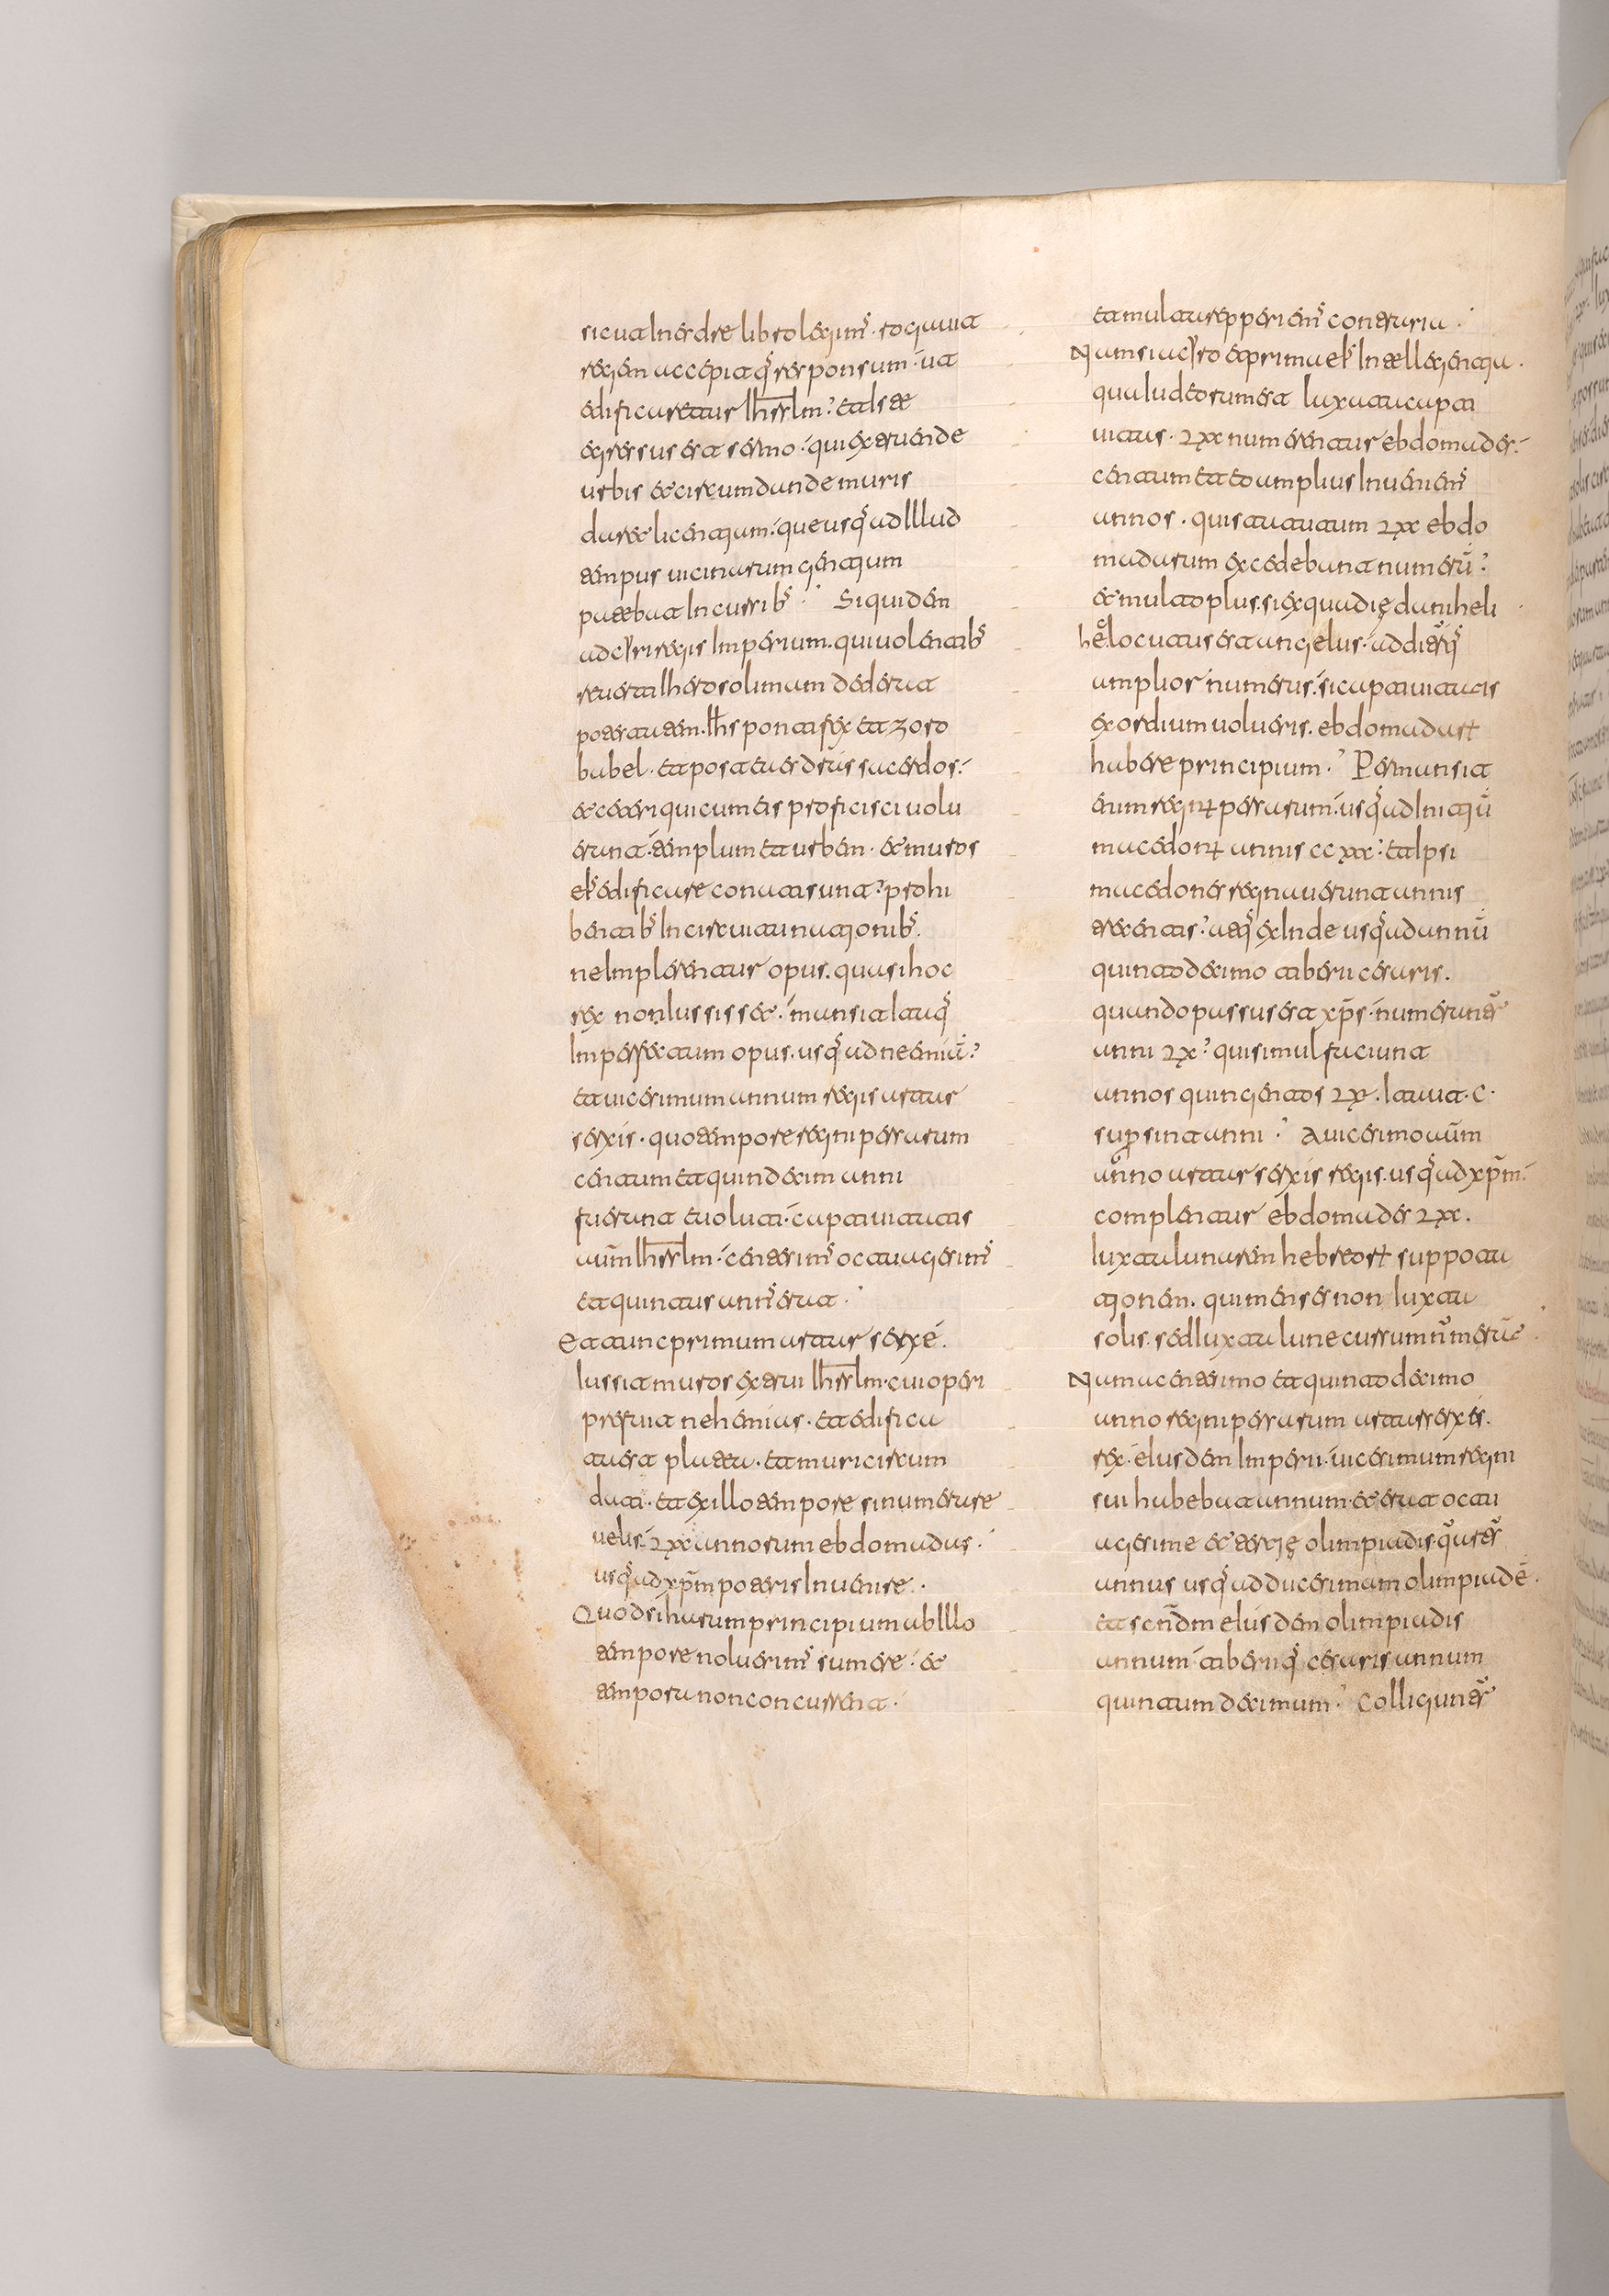 sicut In esdre libro legim᾽ · rogauit
regem accepitq᾽ responsum · ut
edificaretur Ihrlm̄ ? et Iste
egressus est sermo · qui extruende
urbis et circumdande muris
daret licentium · que usq᾽ ad Illud
tempus uicinarum gentium
patebat Incursib᾽ · Siquidem
ad cyri regis Imperium · qui uolentib᾽
reuerti Iherosolimam dederat
potestatem · Ihs pontifex et zoro
babel · et postea esdras sacerdos ·
et ceteri qui cum eis proficisci uolu
erunt · templum et urbem · et muros
ei᾽ edificare conati sunt ? prohi
bentib᾽ In circuitu nationib᾽ ·
ne Impleretur opus · quasi hoc
rex non Iussisset · mansit Itaq᾽
Imperfectum opus · usq᾽ ad neemiā ?
et uicesimum annum regis artar
serxis · quo tempore regni persarum
centum et quindecim anni
fuerant euoluti · captiuitatis
autm̄ Ihrlm̄ · centesim᾽ octuagesim᾽
et quintus ann᾽ erat ·
Et tunc primum artar serxes ·
Iussit muros extrui Ihrlm̄ · cui operi
prefuit nehemias · et edifica
ta est platea · et muri circum
dati · et ex illo tempore si numerare
uelis · lxx annorum ebdomadas ·
usq᾽ ad xp̄m poteris Inuenire ·
Quod si harum principium ab Illo
tempore noluerim᾽ sumere · et
tempora non concurrent ·
et multa repperiem᾽ contraria ·
Nam si a cyro et prima ei᾽ Indulgentia
qua Iudeorum est luxata capti
uitas · lxx numerentur ebdomades ·
centum et eo amplius Inueniem᾽
annos · qui statutum lxx ebdo
madarum excedebant numerū ?
et multo plus · si ex qua die daniheli
locutus est angelus · additq᾽
amplior numerus · si captiuitatis
exordium uolueris · ebdomadarum
habere principium · ? Permansit
enim regnum persarum · usq᾽ ad Initiū
macedonum annis ccxxx ? et Ipsi
macedones regnauerunt annis
trecentis ? atq᾽ exInde usq᾽ ad annū
quintodecimo tiberii cesaris ·
quando passus est xp̄s · numerant᾽
anni lx ? qui simul faciunt
annos quingentos lxxx · Ita ut · c ·
supersint anni · ? A uicesimo autm̄
anno artar serxis regis · usq᾽ ad xp̄m ·
complentur ebdomades lxx ·
Iuxta lunarem hebreorum supputa
tionem · qui menses non Iuxta
solis · sed Iuxta lune cursum numerāt ·
Nam a centesimo et quintodecimo
anno regni persarum artarserxes ·
rex · eiusdem Imperii · uicesimum regni
sui habebat annum · et erat octu
agesime et tertie olimpiadis quart᾽
annus usq᾽ ad ducesimam olimpiadē ·
et scn̄dm eiusdem olimpiadis
annum · tiberiiq᾽ cesaris annum
quintumdecimum · ? Colligunt᾽